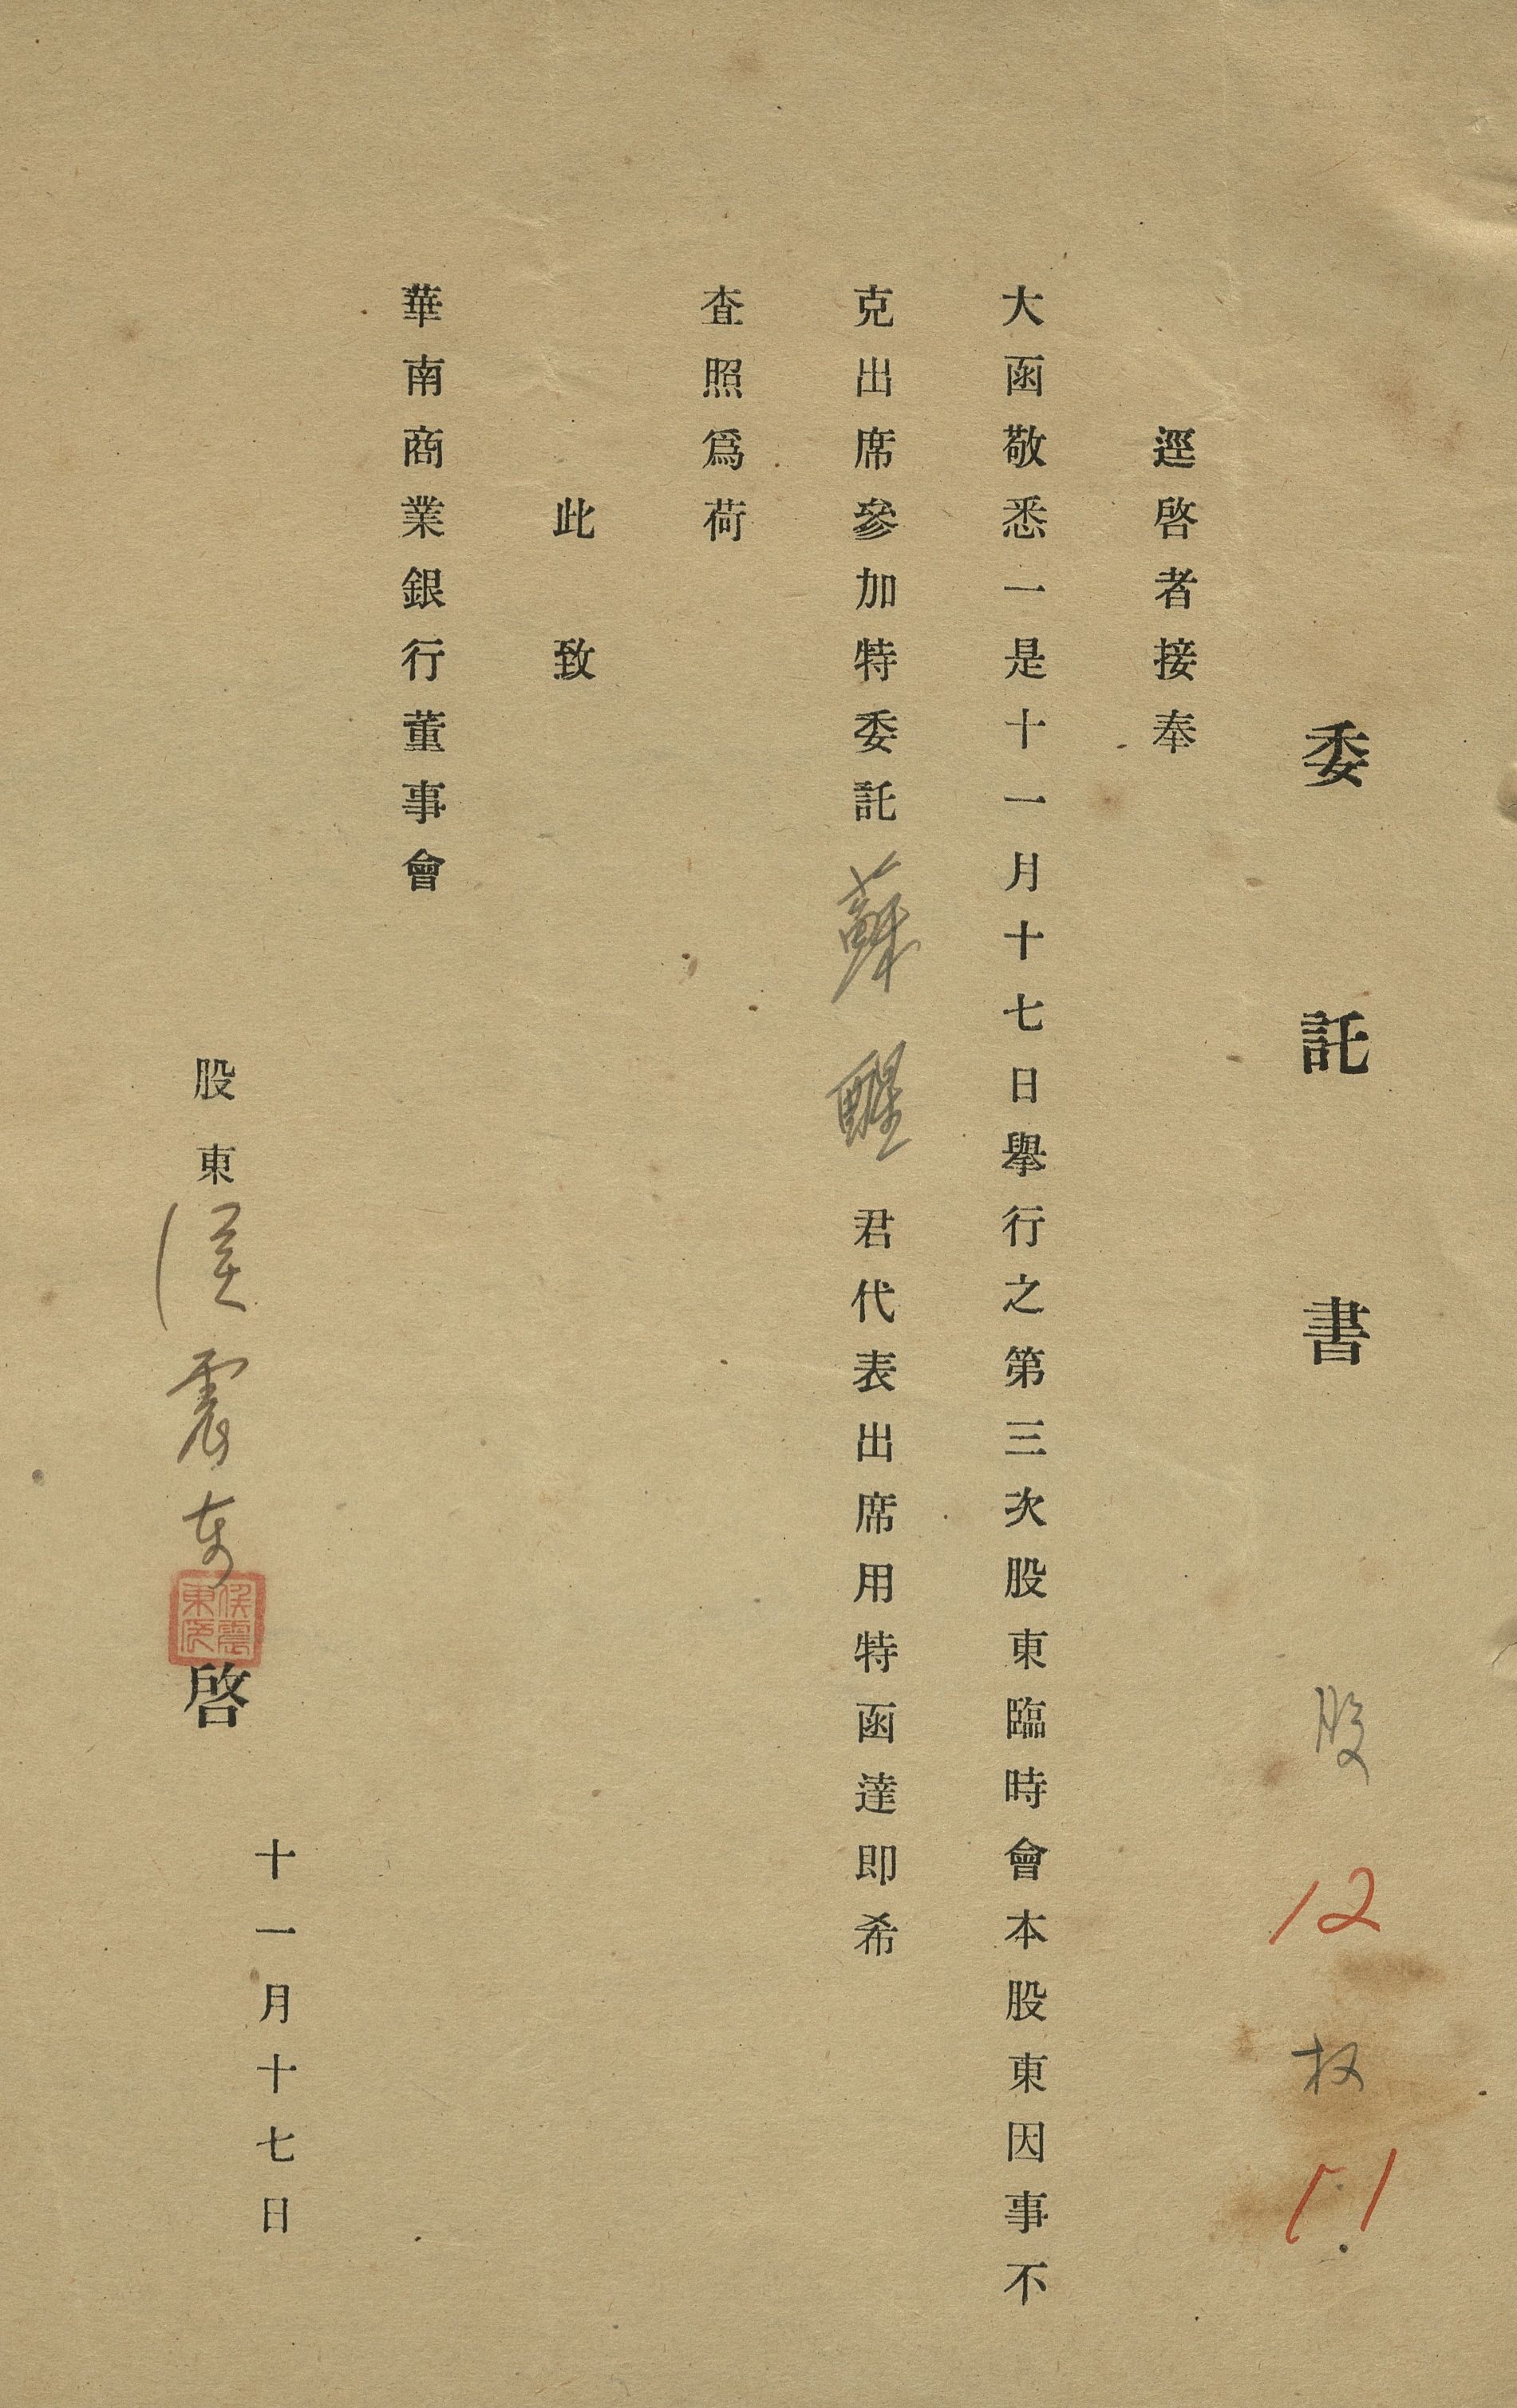 委託書
股 12 权 11
逕啓者接奉
大函敬悉一是十一月十七日舉行之第三次股東臨時會本股東因事不
克出席參加特委託蘇醒君代表出席用特函達即希
査照爲荷
此致
華南商業銀行董事會
十一月十七日
股東侯震東啓
侯震東印